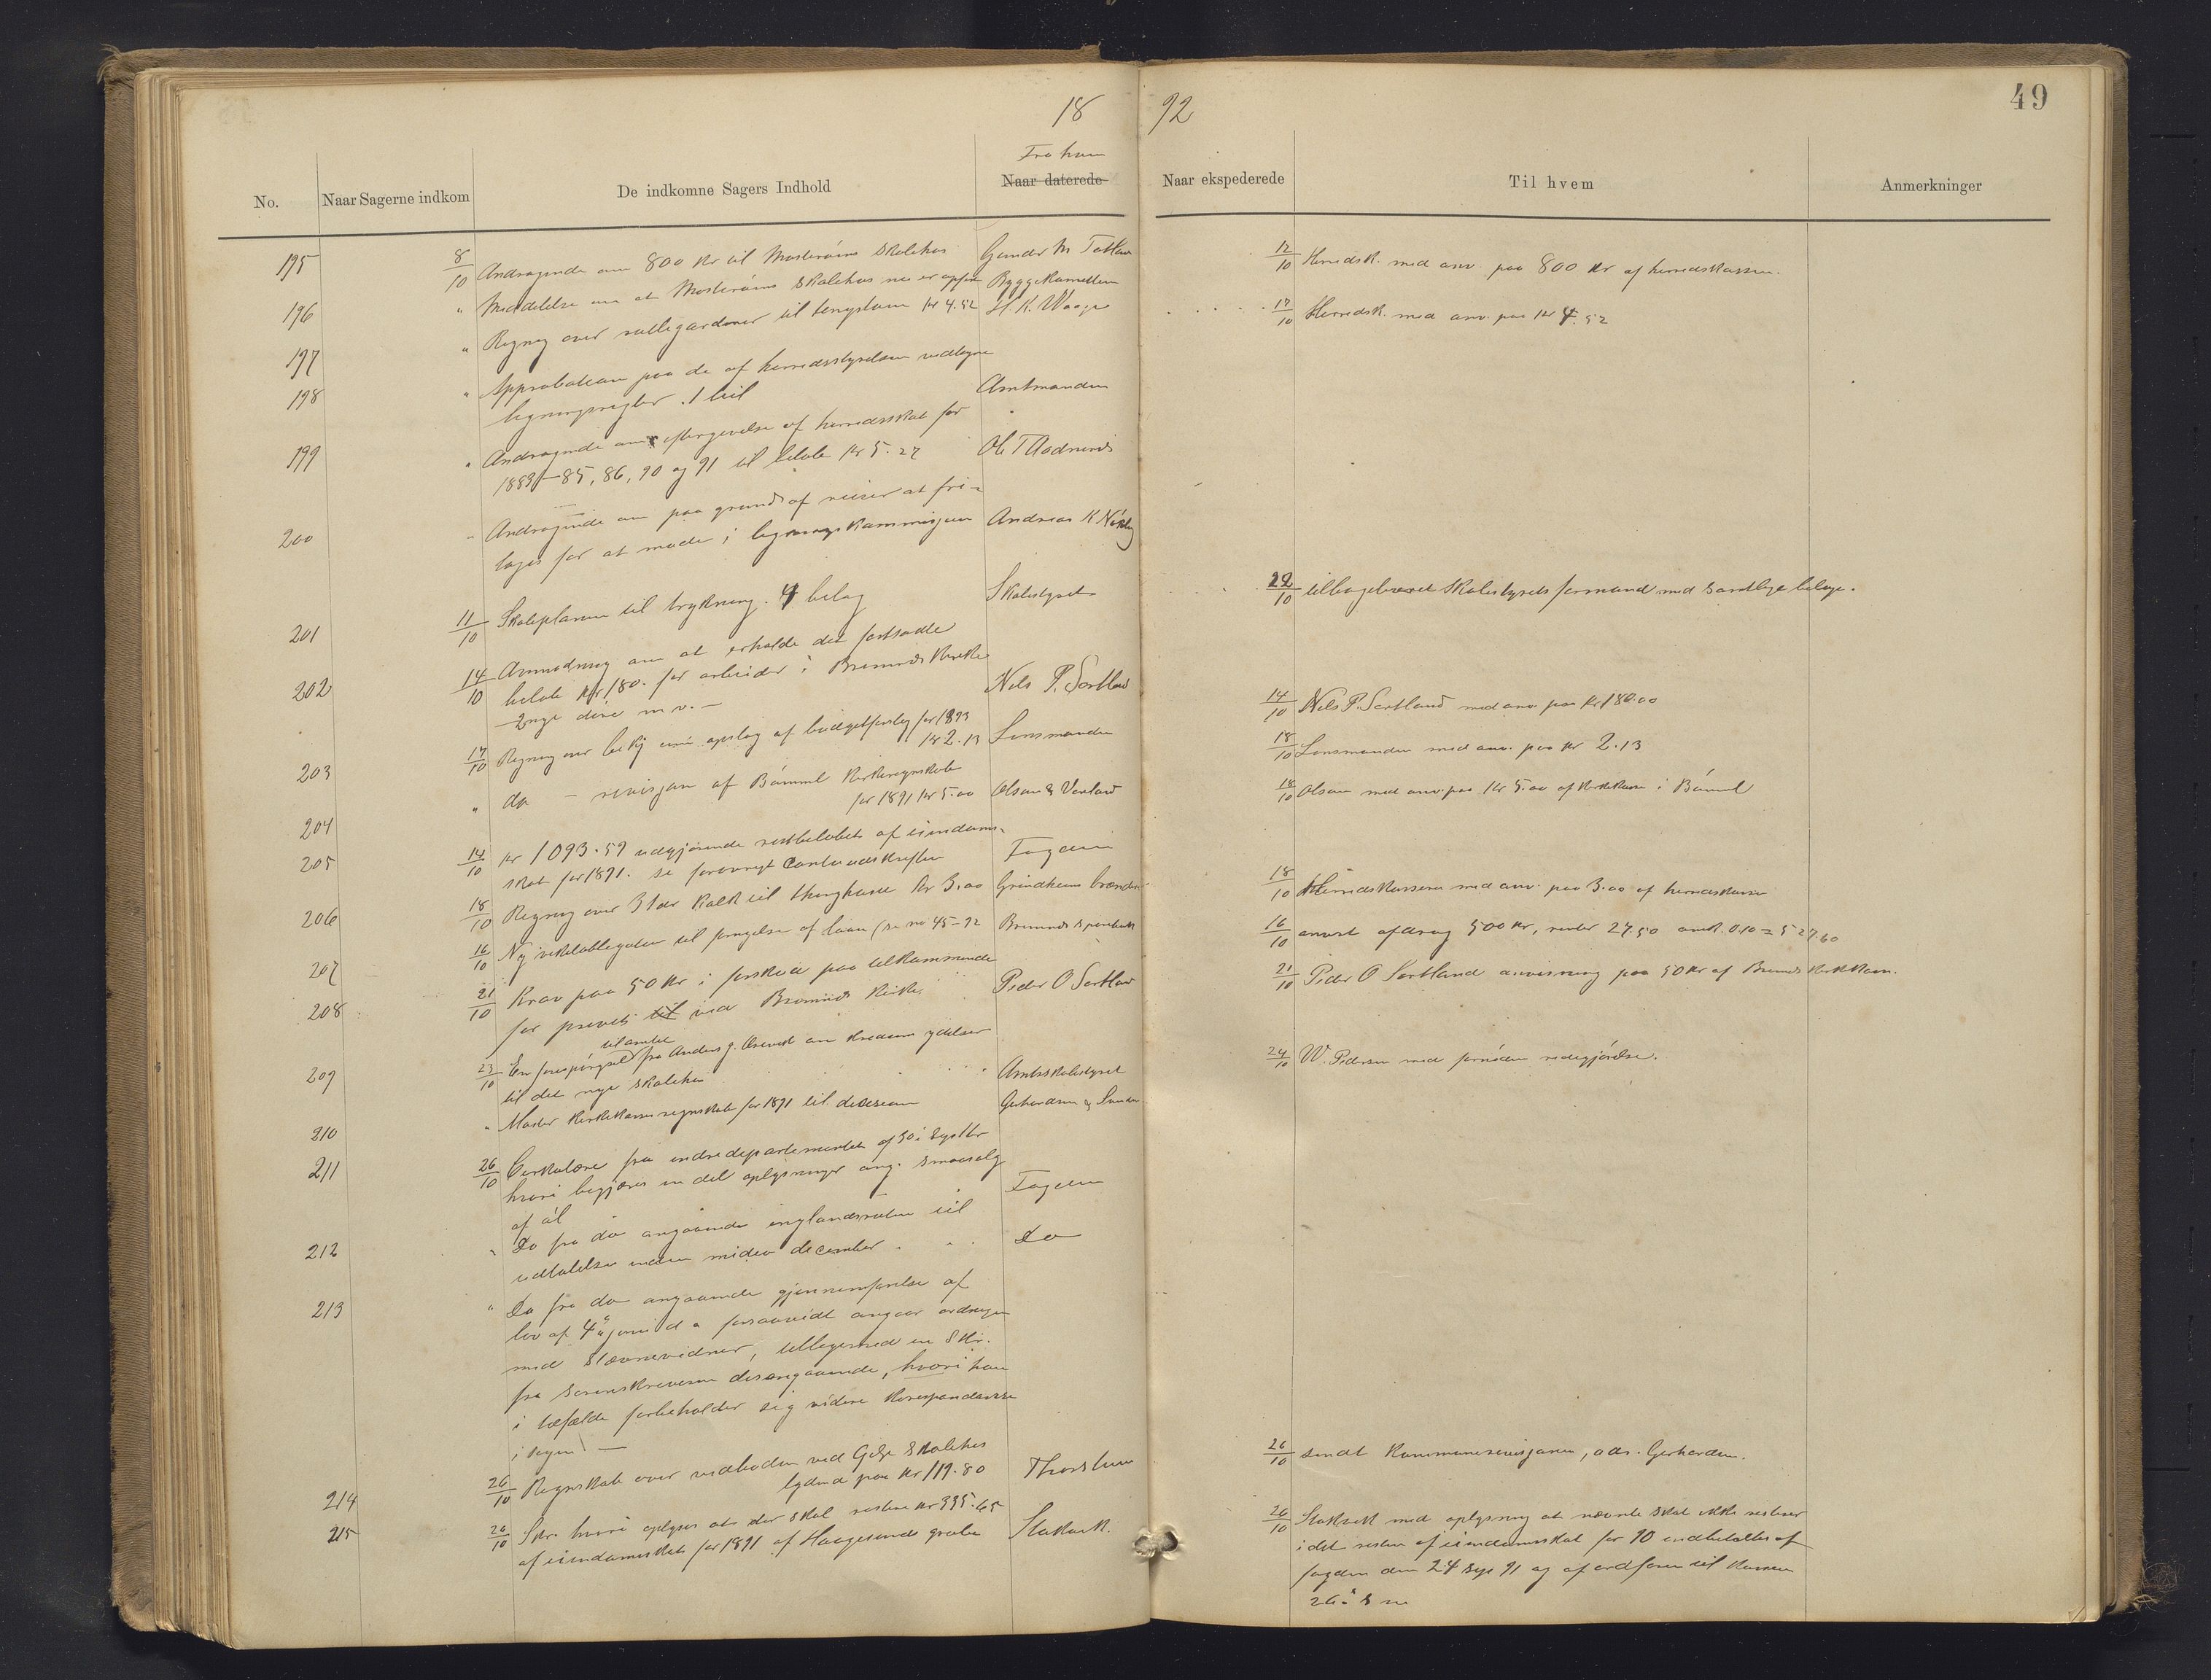 18 92
49
Fra hvem
No.
Naar Sagerne indkom
De indkomne Sagers Indhold
Naar daterede
Naar ekspederede
Til hvem
Anmerkninger
195 8/10 Andragende om 800 kr til Mosterøens skolehus
12/10 Herredsk. med anv. paa 800 kr af herredskassen.
196 " Meddelelse om at Mosterøens skolehus nu er opført Byggekomiteen
197 " Regning over rullegardiner til kr 4.52 H. K. Waage
17/10 Herredsk. med anv. paa kr 4.52
198 " Approbation paa de af herredsstyrelsen vedtagne
ligningsregler. 1 bil Amtmanden
199 " Andragende om eftergivelse af herredsskat for
1883-85, 86, 90 og 91 til beløb kr 5.27
200 " Andragende om paa grund af reiser at fri-
tages for at møde i ligningskommissjonen Andreas K
201 11/10 Skoleplanen til trykning. 4 bilag Skolestyret
22/10 tilbageleveret skolestyrets formand med samtlige bilage.
202 14/10 Anmodning om at erholde det fortsatte
beløb kr 180. for arbeider i Bremnes kirke
2 nye døre m.v. — Nils P. Sortland
14/10 Nils P. Sortland med anv. paa kr 180.00
203 17/10 Regning over opslag af budgetforslag for 1893
kr 2.13 Lensmanden
18/10 Lensmanden med anv. paa kr 2.13
204 " do — revisjon af Bømmel kirkeregnskab
for 1891 kr 5.00 Olson & Vorland
18/10 Olson med anv. paa kr 5.00 af kirkekassen i Bømmel
205 14/10 kr 1093.59 udgjørende restbeløbet af eiendoms-
skat for 1891. se forøvrigt Fogden
206 18/10 Regning over 3 tdr kalk til thinghuset kr 3.00 Grindheim
18/10 Herredskasseren med anv. paa 3.00 af herredskassen
207 16/10 Ny vekselobligation til fornyelse af laan (se no 45-92 Bremnes sparebank
16/10 anvist afdrag 500 kr, renter 27.50 omk. 0.10 = 527.60
208 21/10 Krav paa 50 kr i forskud paa tilkommende
for ved Bremnes kirke Peder O Sortland
21/10 Peder O Sortland anvisning paa 50 kr af Bremnes kirkekasse.
til amtet
209 23/10 En forespørgsel fra Anders J. om ydelser
til det nye skolehus Amtsskolestyret
24/10 W. Pedersen med fornøden redegjørelse.
210 " Moster kirkekasseregnskab for 1891 til decision
211 26/10 Cirkulære fra indredepartementet af 30te septbr
hvori begjæres en del oplysninger ang. smaasalg
af øl Fogden
212 " Do fra do angaaende til
udtalelse inden midten december Do
213 " Do fra do angaaende gjennemførelse af
lov af 4de juni d a forsaavidt angaar ordningen
med stævnevidner, tilligemed en skr.
fra sorenskriveren desangaaende, hvori han
i tilfælde forbeholder sig videre korrespondanse
i sagen —
214 26/10 Regnskab over ved skolehus
lydende paa kr 119.80
26/10 sendt kommunerevisjonen, adr. Gerhardsen.
215 26/10 Skr. hvori oplyses at der skal restere kr 335.65
af eiendomsskat for 1891 af Haugesunds grube
26/10 med oplysning at nævnte skat ikke resterer
idet resten af eiendomsskat for 90 indbetaltes af
fogden den 24 sep 91 og af ordføren til kassen
26de s m